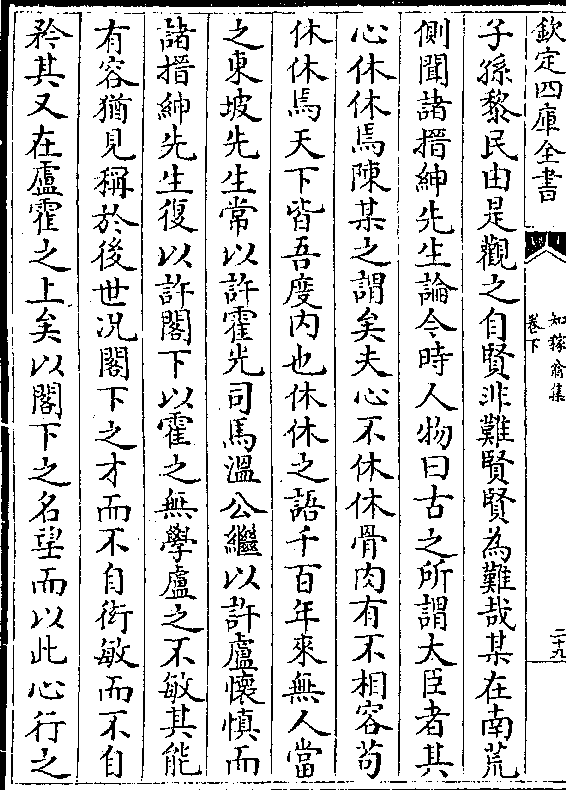 欽定四庫全書
知稼翁集
卷下
二十九
子孫黎民由是觀之自賢非難賢賢為難哉某在南荒
側聞諸搢紳先生論今時人物曰古之所謂大臣者其
心休休焉陳某之謂矣夫心不休休骨肉有不相容苟
休休焉天下皆吾度内也休休之語千百年來無人當
之東坡先生常以許霍光司馬溫公繼以許盧懷慎而
諸搢紳先生復以許閣下以霍之無學盧之不敏其能
有容猶見稱於後世况閣下之才而不自衒敏而不自
矜其又在盧霍之上矣以閣下之名望而以此心行之